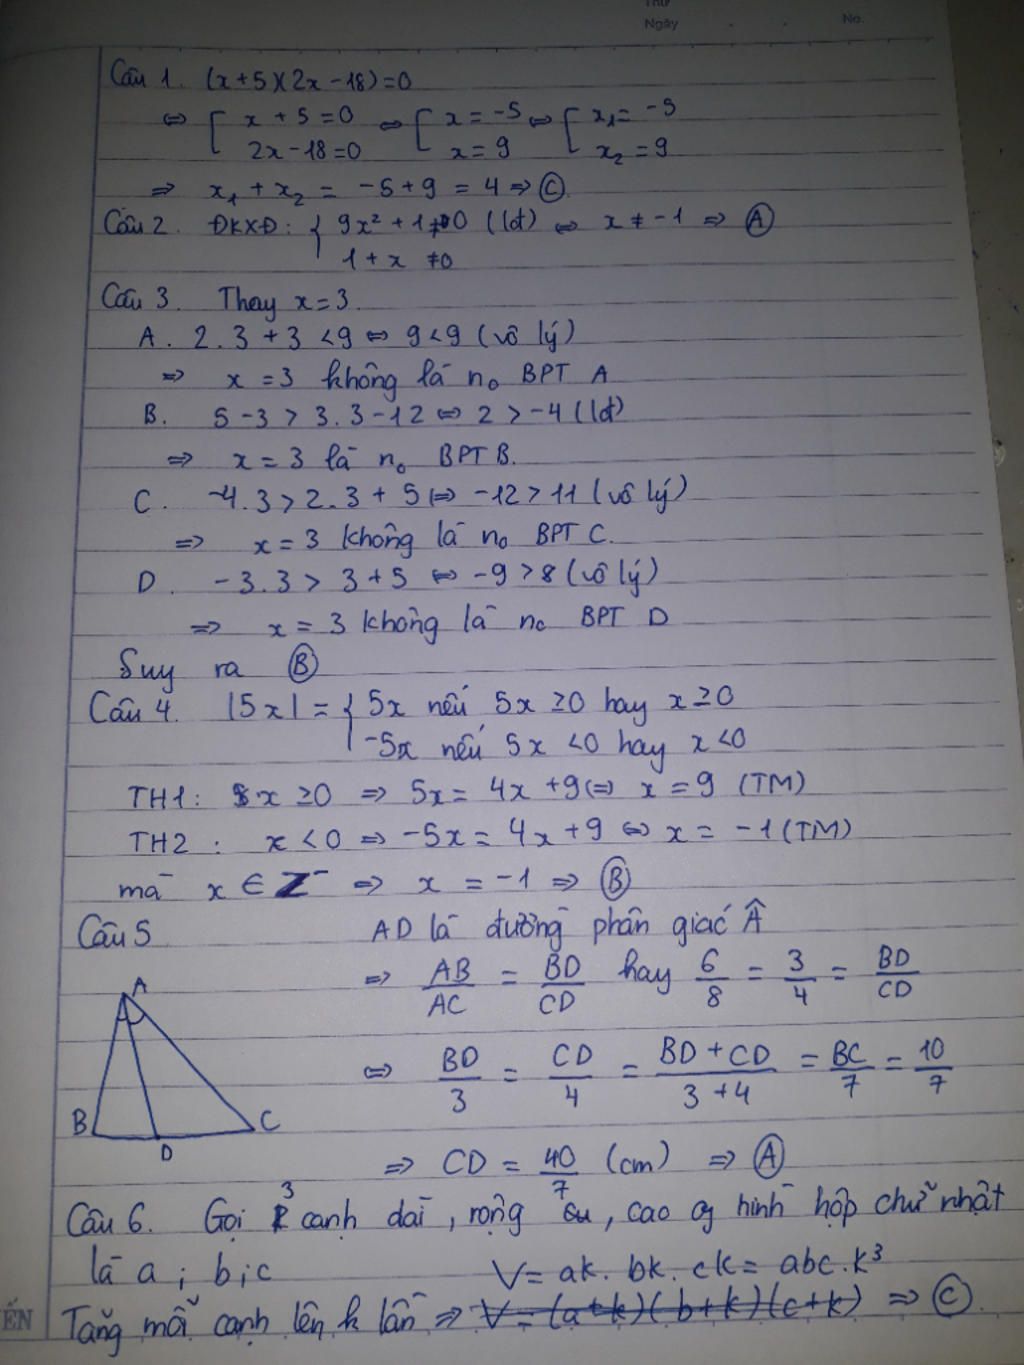 Thứ
Ngày No.
Câu 1. (x+5)(2x-18)=0
⇔ [ x+5=0 ⇔ [ x=-5 ⇔ [ x₁=-5
2x-18=0 x=9 x₂=9
⇒ x₁+x₂ = -5+9 = 4 ⇒ Ⓒ
Câu 2. ĐKXĐ: { 9x²+1≠0 (lđ) ⇔ x≠-1 ⇒ Ⓐ
1+x ≠0
Câu 3. Thay x=3
A. 2.3+3<9 ⇔ 9<9 (vô lý)
⇒ x=3 không là n₀ BPT A
B. 5-3 > 3.3-12 ⇔ 2>-4 (lđ)
⇒ x=3 là n₀ BPT B.
C. -4.3>2.3+5 ⇔ -12>11 (vô lý)
⇒ x=3 không là n₀ BPT C.
D. -3.3 > 3+5 ⇔ -9>8 (vô lý)
⇒ x=3 không là n₀ BPT D
Suy ra Ⓑ
Câu 4. |5x| = { 5x nếu 5x ≥0 hay x≥0
-5x nếu 5x <0 hay x<0
TH1: x ≥0 ⇒ 5x = 4x+9 ⇔ x=9 (TM)
TH2: x<0 ⇒ -5x = 4x+9 ⇔ x = -1 (TM)
mà x ∈ Z⁻ ⇒ x = -1 ⇒ Ⓑ
Câu 5 AD là đường phân giác Â
⇒ AB/AC = BD/CD hay 6/8 = 3/4 = BD/CD
A
⇔ BD/3 = CD/4 = BD+CD/3+4 = BC/7 = 10/7
B D C
⇒ CD = 40/7 (cm) ⇒ Ⓐ
Câu 6. Gọi 3 cạnh dài, rộng, cao of hình hộp chữ nhật
là a; b; c V = ak. bk. ck = abc.k³
Tăng mỗi cạnh lên k lần ⇒ V = (a+k)(b+k)(c+k) ⇒ Ⓒ
ẾN